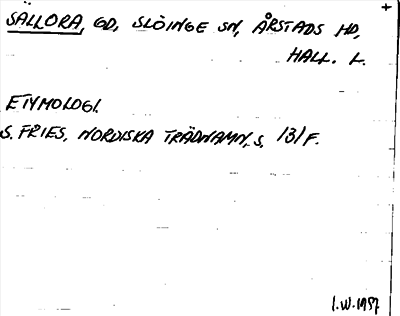 SÄLLORA, GD, SLÖINGE SN, ÅRSTADS HD,
HALL. L.
ETYMOLOGI.
S. FRIES, NORDISKA TRÄDNAMN, S. 131 F.
I.W. 1957